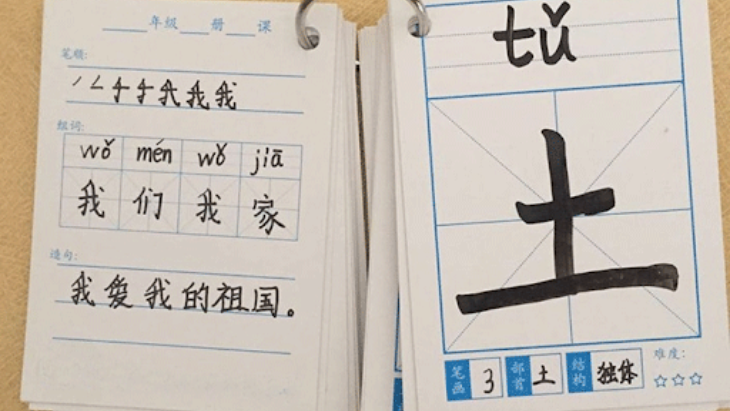 ____年级____册____课
笔顺:
我我
组词:
wǒ mén wǒ jiā
我们我家
造句:
我爱我的祖国。
tǔ
土
笔画 3 部首 土 结构 独体 难度:
☆☆☆